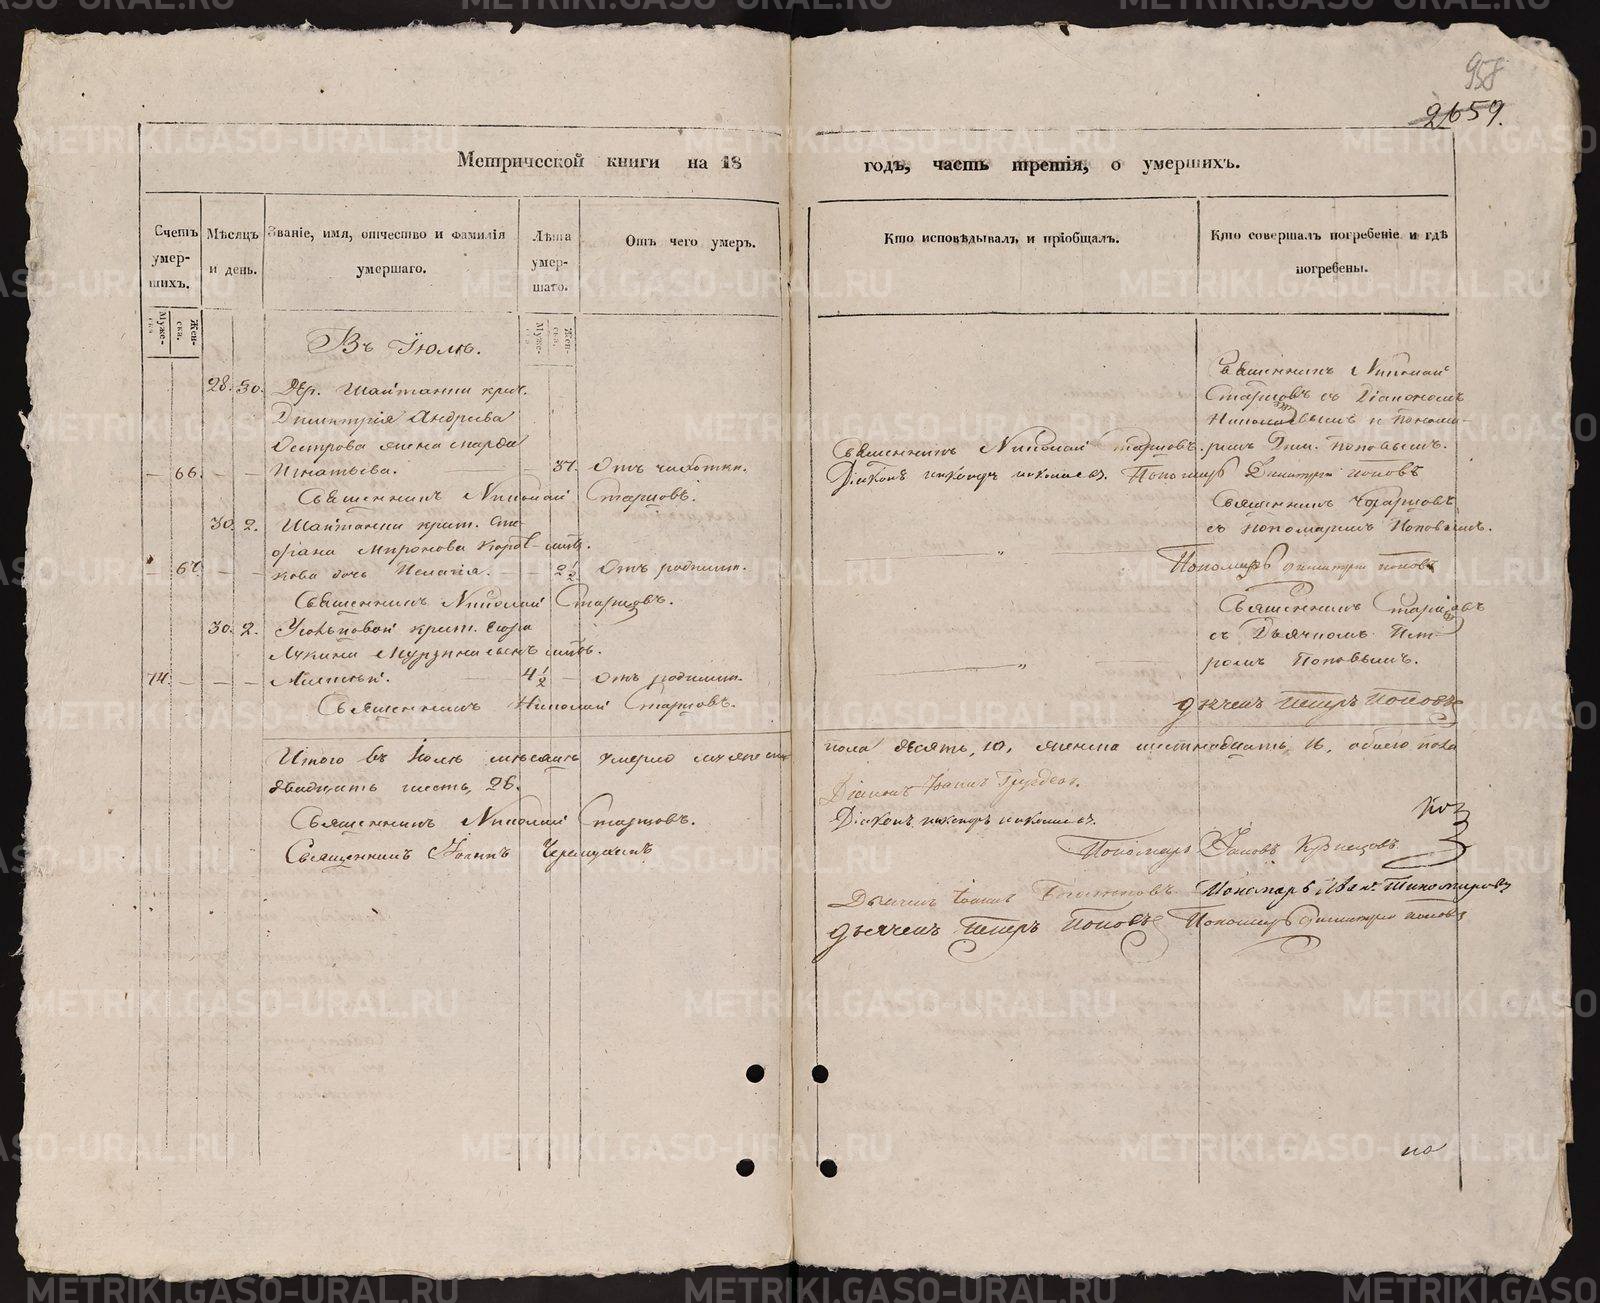 958
2659.
Метрической книги на 18
годъ, часть третія, о умершихъ.
Счетъ умер-шихъ.
Мѣсяцъ и день.
Званіе, имя, отчество и фамилія умершаго.
Лѣта умер-шаго.
Отъ чего умеръ.
Кто исповѣдывалъ и пріобщалъ.
Кто совершалъ погребеніе и гдѣ погребены.
Муже-ска
Жен-ска.
Муже-
Жен-ска.
Въ Іюлѣ.
28. 30. Дер. Шайтанки крест.
Димитрія Андреева
Острова жена Марфа
66. Игнатьева. 37. Отъ чахотки.
Священникъ Николай Старцовъ.
30. 2. Шайтанки крест. Сте-
фана Миронова Коров-
67. кова дочь Пелагія. 2 1/2 Отъ родимц.
Священникъ Николай Старцовъ.
30. 2. крест.
Лукина Мурзина сынъ
74. 4 1/2 Отъ родимц.
Священникъ Николай Старцовъ.
Итого въ Іюлѣ мѣсяцѣ умерло мужеска
двадцать шесть, 26.
Священникъ Николай Старцовъ.
Священникъ Іоаннъ
Священникъ Николай
Старцовъ съ Діакономъ
и понома-
ремъ Дим. Поповымъ.
Священникъ Николай Старцовъ.
Діаконъ Пономарь Димитрій Поповъ
Священникъ Старцовъ
съ пономаремъ Поповымъ.
Пономарь Димитрій Поповъ
Священникъ Старцовъ
съ Дьячкомъ Пет-
ромъ Поповымъ.
дьячекъ Петръ Поповъ
пола десять, 10, женска шестнадцать, 16, обоего пола
Діаконъ Іоаннъ
Діаконъ
Пономарь
Дьячекъ Іоаннъ
Пономарь Иван Тихомировъ
дьячекъ Петръ Поповъ
Пономарь Димитрій Поповъ
по
METRIKI.GASO-URAL.RU